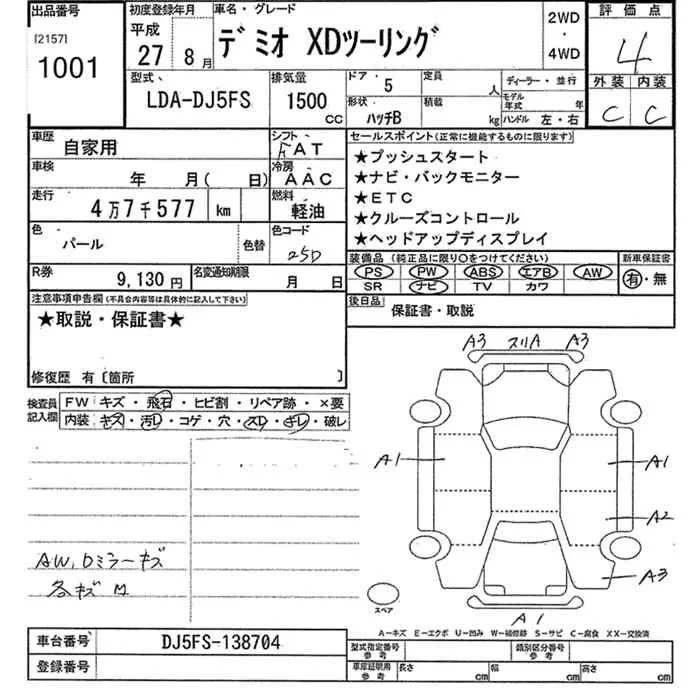 出品番号
[2157]
1001
初度登録年月
平成
27 8月
車名・グレード
デミオ XDツーリング
2WD
・
4WD
評価点
4
外装 内装
C C
型式
LDA-DJ5FS
排気量
1500
CC
ドア・ 5
形状
ハッチB
定員
人
積載
kg
ディーラー・並行
モデル年式 年
ハンドル 左・右
車歴
自家用
シフト
FAT
車検
年 月( 日)
冷房
AAC
走行
4万7千577 km
燃料
軽油
色
パール
色替
色コード
25D
R券
9,130円
名変通知期限
月 日
セールスポイント(正常に機能するものに限ります)
★プッシュスタート
★ナビ・バックモニター
★ETC
★クルーズコントロール
★ヘッドアップディスプレイ
装備品(純正品に限り○をつけてください)
PS PW ABS エアB AW
SR ナビ TV カワ
新車保証書
有・無
後日品
保証書・取説
注意事項申告欄(不具合内容等は具体的に記入して下さい)
★取説・保証書★
修復歴 有〔箇所 〕
検査員
記入欄
FW キズ・飛石・ヒビ割・リペア跡・×要
内装 キズ・汚レ・コゲ・穴・スレ・キレ・破レ
AW,Dミラーキズ
各キズ M
A3 スリA A3
A1
A1
A2
A3
A1
スペア
A－キズ E－エクボ U－凹み W－補修跡 S－サビ C－腐食 XX－交換済
車台番号
DJ5FS-138704
登録番号
型式指定番号
参考
類別区分番号
参考
車庫証明用
参考
長さ cm
幅 cm
高さ cm